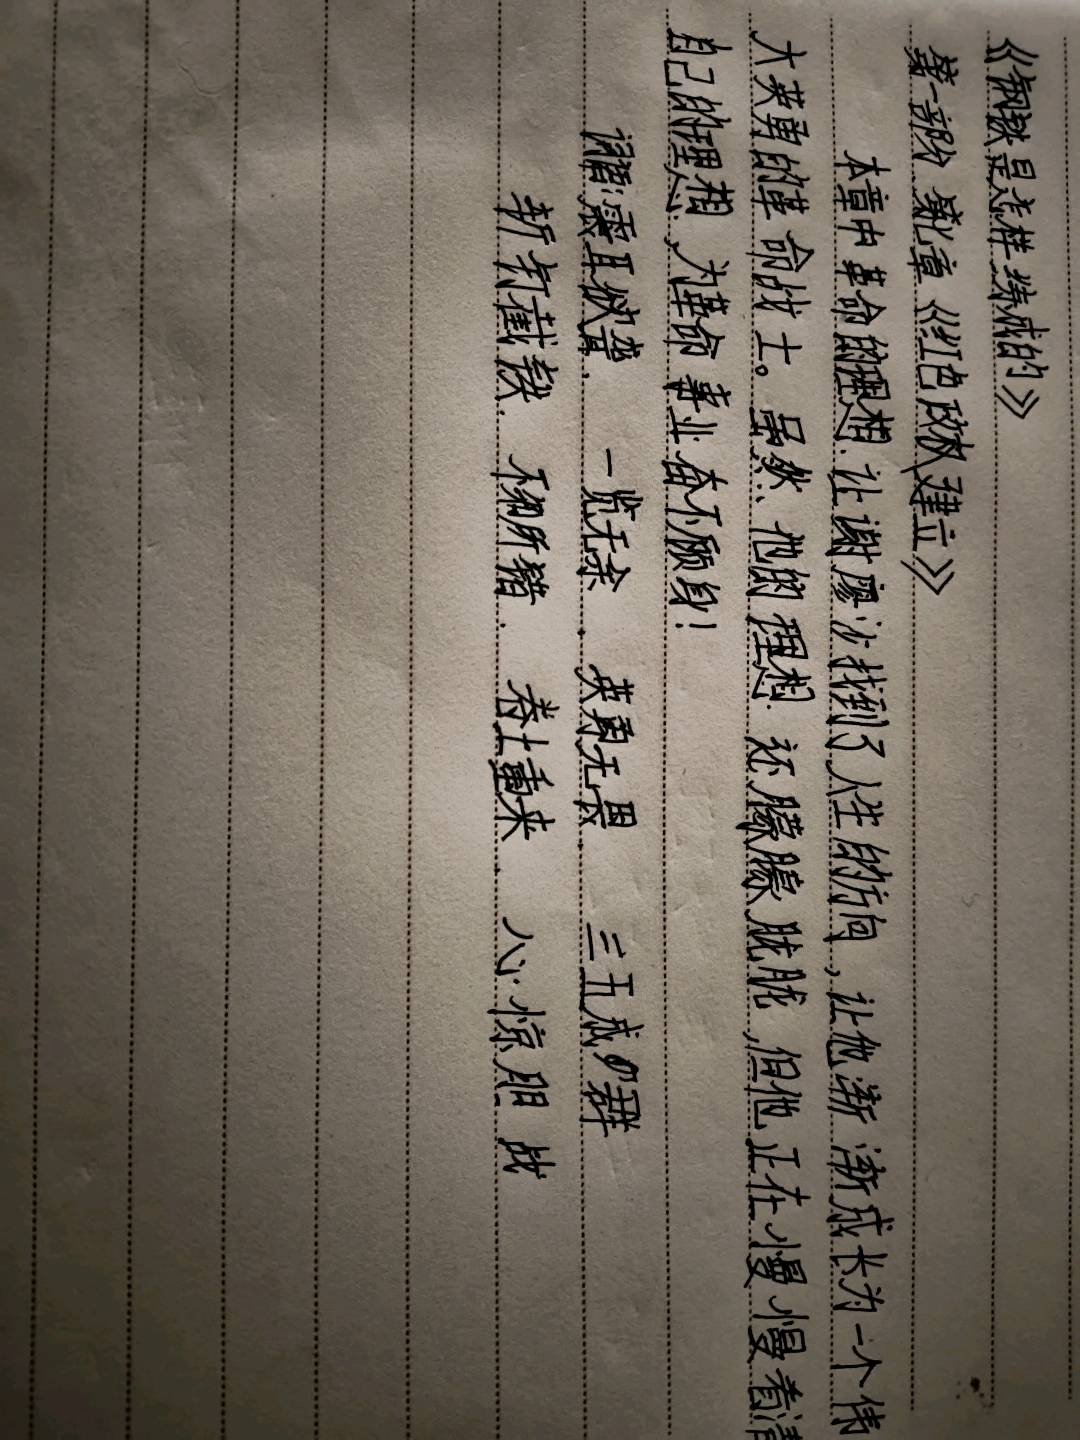 《钢铁是怎样炼成的》
第一部分 章《红色政权建立》
本章中革命的理想让谢廖沙找到了人生的方向,让他渐渐成长为一个伟
大英勇的革命战士。虽然他的理想还朦朦胧胧,但他正在慢慢看清
自己的理想,为革命事业奋不顾身!
震耳欲聋. 一览无余. 英勇无畏. 三五成群
斩钉截铁. 不知所措. 卷土重来. 心惊胆战